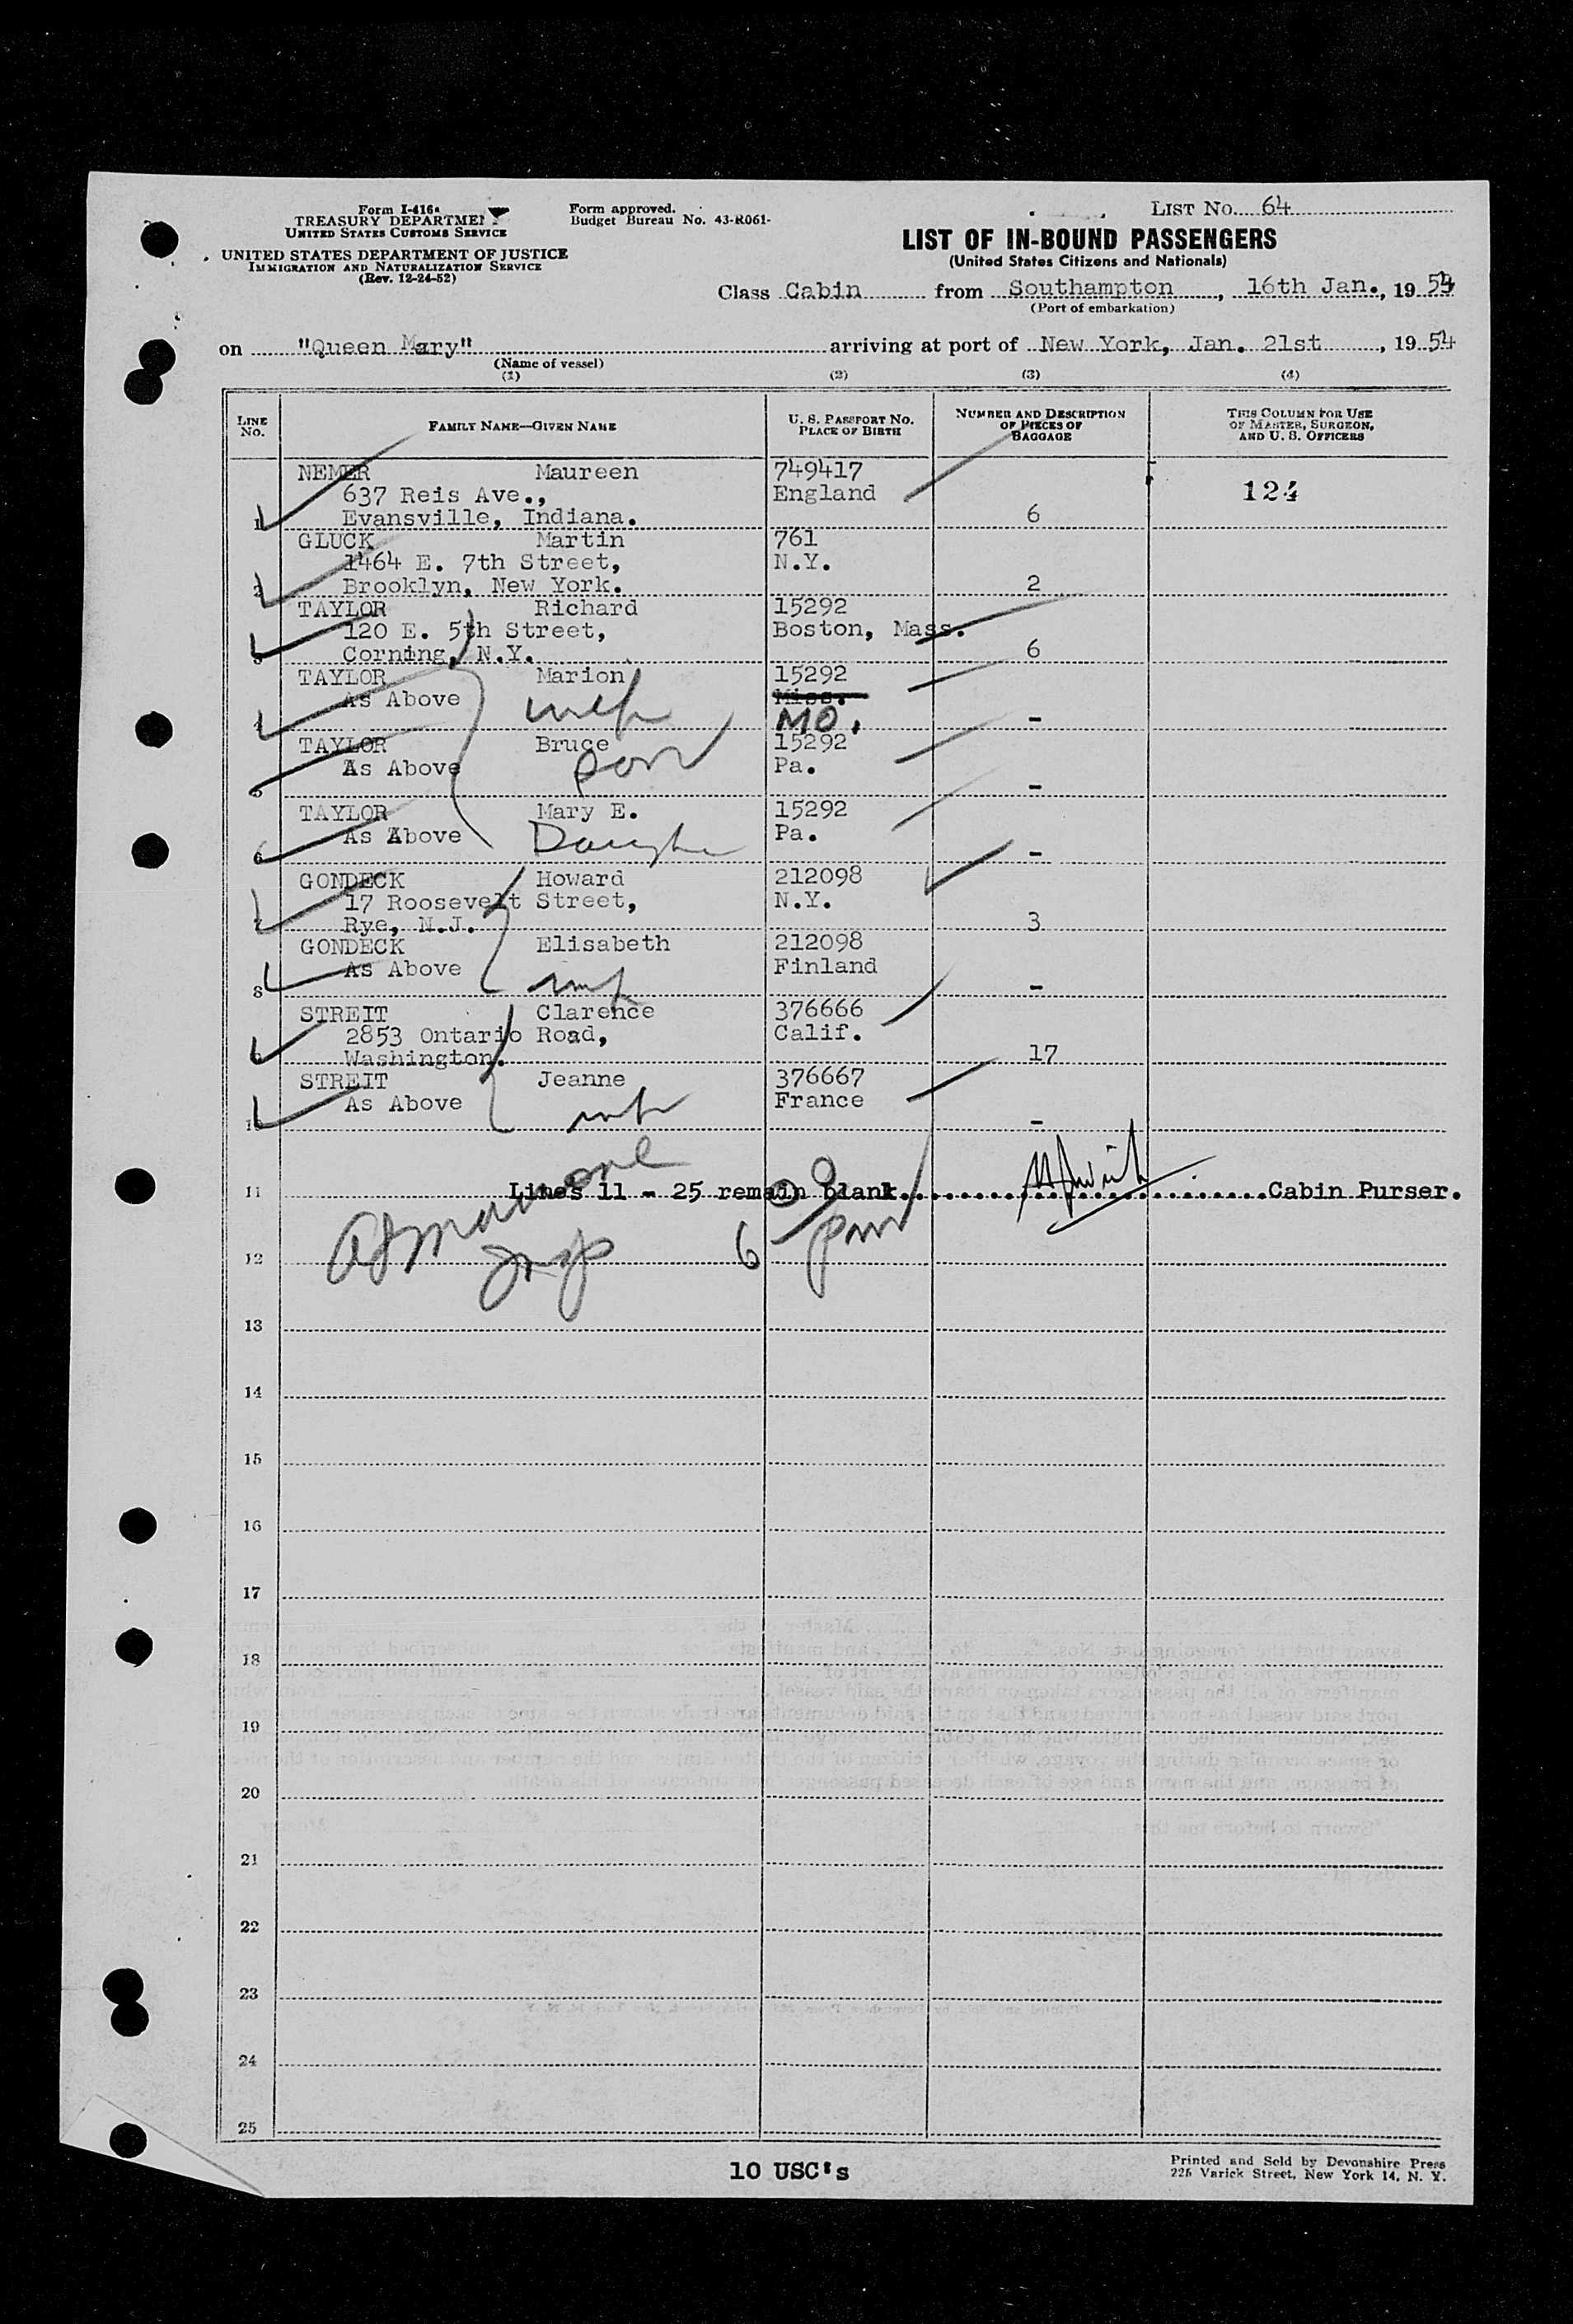 Form I-416a
TREASURY DEPARTME
UNITED STATES CUSTOMS SERVICE
UNITED STATES DEPARTMENT OF JUSTICE
IMMIGRATION AND NATURALIZATION SERVICE
(Rev. 12-24-52)
Form approved.
Budget Bureau No. 43-R061-
LIST NO. 64
LIST OF IN-BOUND PASSENGERS
(United States Citizens and Nationals)
Class Cabin from Southampton, 16th Jan., 1954
(Port of embarkation)
on "Queen Mary" arriving at port of New York, Jan. 21st, 1954
(Name of vessel)
(1) (2) (3) (4)
LINE NO. FAMILY NAME—GIVEN NAME U. S. PASSPORT NO. PLACE OF BIRTH NUMBER AND DESCRIPTION OF PIECES OF BAGGAGE THIS COLUMN FOR USE OF MASTER, SURGEON, AND U. S. OFFICERS
NEMER Maureen 749417
637 Reis Ave., England 124
1 Evansville, Indiana. 6
GLUCK Martin 761
1464 E. 7th Street, N.Y.
2 Brooklyn, New York. 2
TAYLOR Richard 15292
120 E. 5th Street, Boston, Mass.
3 Corning, N.Y. 6
TAYLOR Marion 15292
As Above wife Miss.
4 MO. -
TAYLOR Bruce 15292
As Above son Pa.
5 -
TAYLOR Mary E. 15292
As Above Daughter Pa.
6 -
GONDECK Howard 212098
17 Roosevelt Street, N.Y.
7 Rye, N.J. 3
GONDECK Elisabeth 212098
As Above Finland
8 wife -
STREIT Clarence 376666
2853 Ontario Road, Calif.
9 Washington. 17
STREIT Jeanne 376667
As Above wife France
10 -
11 Lines 11 - 25 remain blank. Cabin Purser.
12 6
13
14
15
16
17
18
19
20
21
22
23
24
25
10 USC's
Printed and Sold by Devonshire Press
225 Varick Street, New York 14, N. Y.